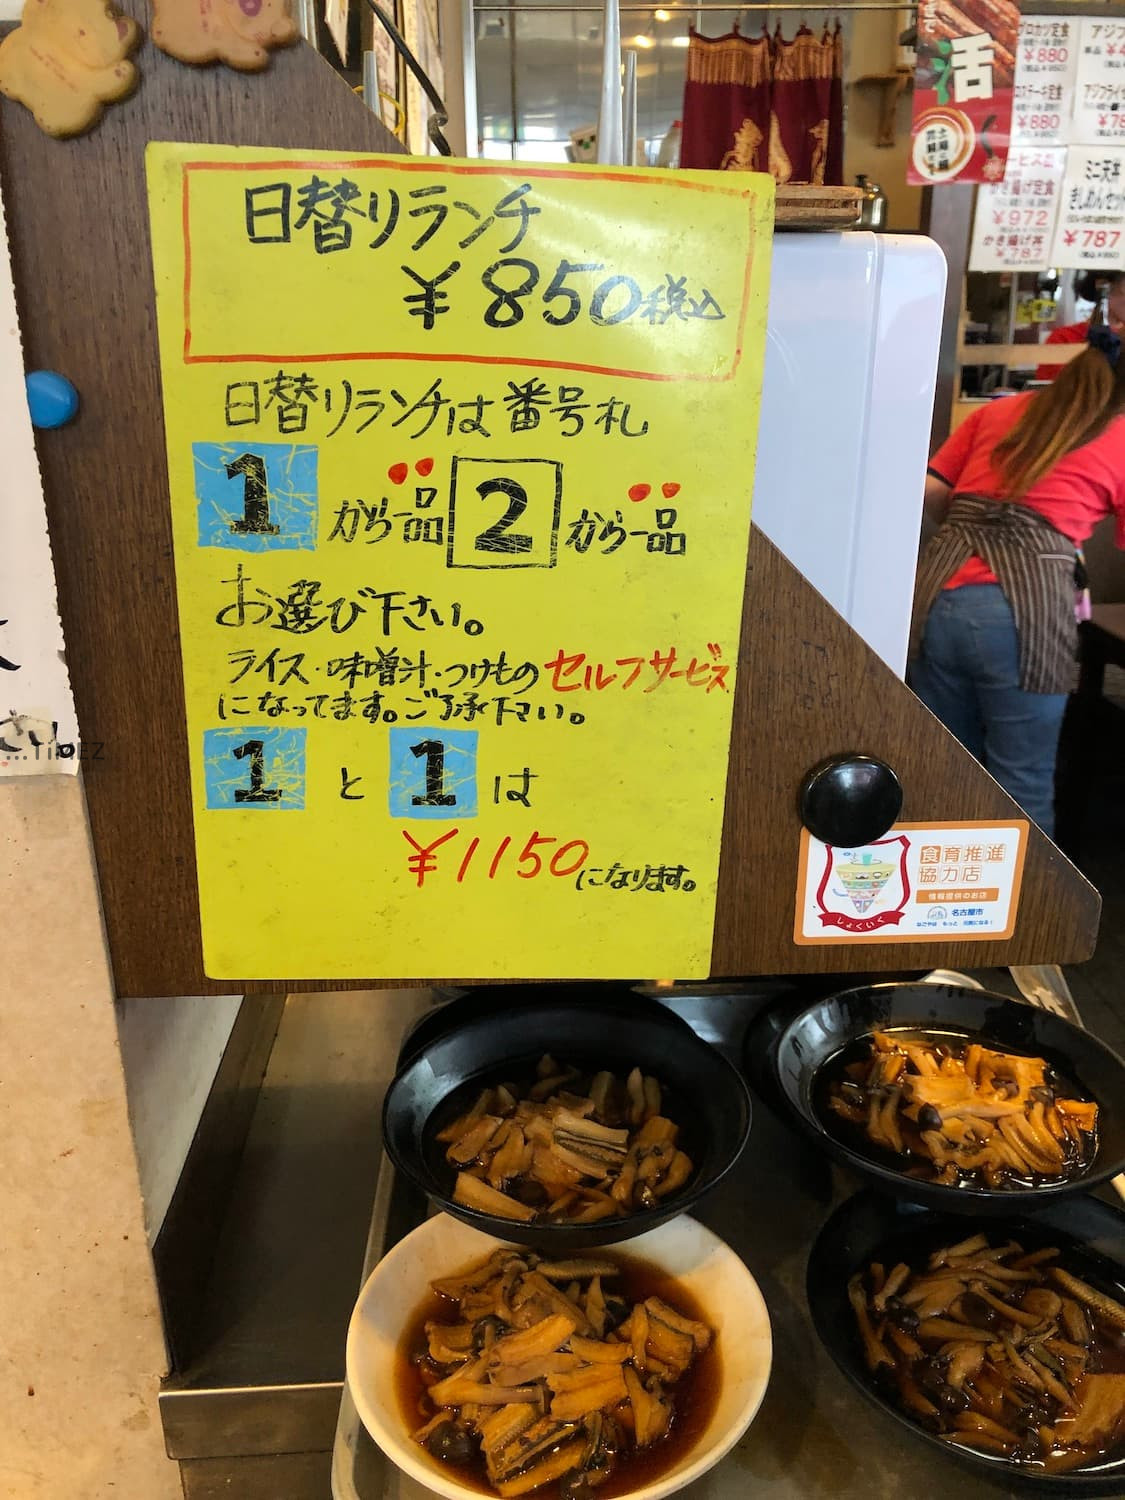 日替リランチ
¥850税込
日替リランチは番号札
1から一品 2から一品
お選び下さい。
ライス・味噌汁・つけものセルフサービス
になってます。ご了承下さい。
1と1は
¥1150になります。
食育推進
協力店
情報提供のお店
名古屋市
なごやは もっと 元気になる!
しょくいく
活
¥880
ロステーキ定食
¥880
かき揚げ定食
¥972
かき揚げ丼
¥787
ミニ天丼
きしめんセット
¥787